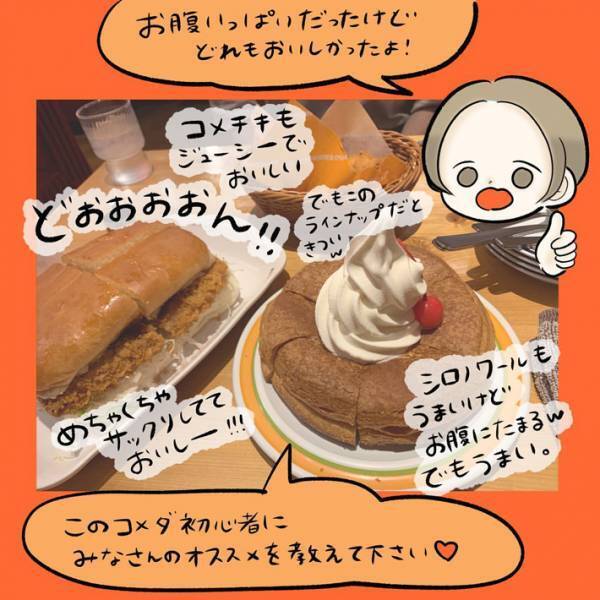 お腹いっぱいだったけど
どれもおいしかったよ!
コメチキも
ジューシーで
おいしい
どぉぉぉぉん!!
でもこの
ラインナップだと
きついw
めちゃくちゃ
サックリしてて
おいしー!!!
シロノワールも
うまいけど
お腹にたまるw
でもうまい。
このコメダ初心者に
みなさんのオススメを教えて下さい♡